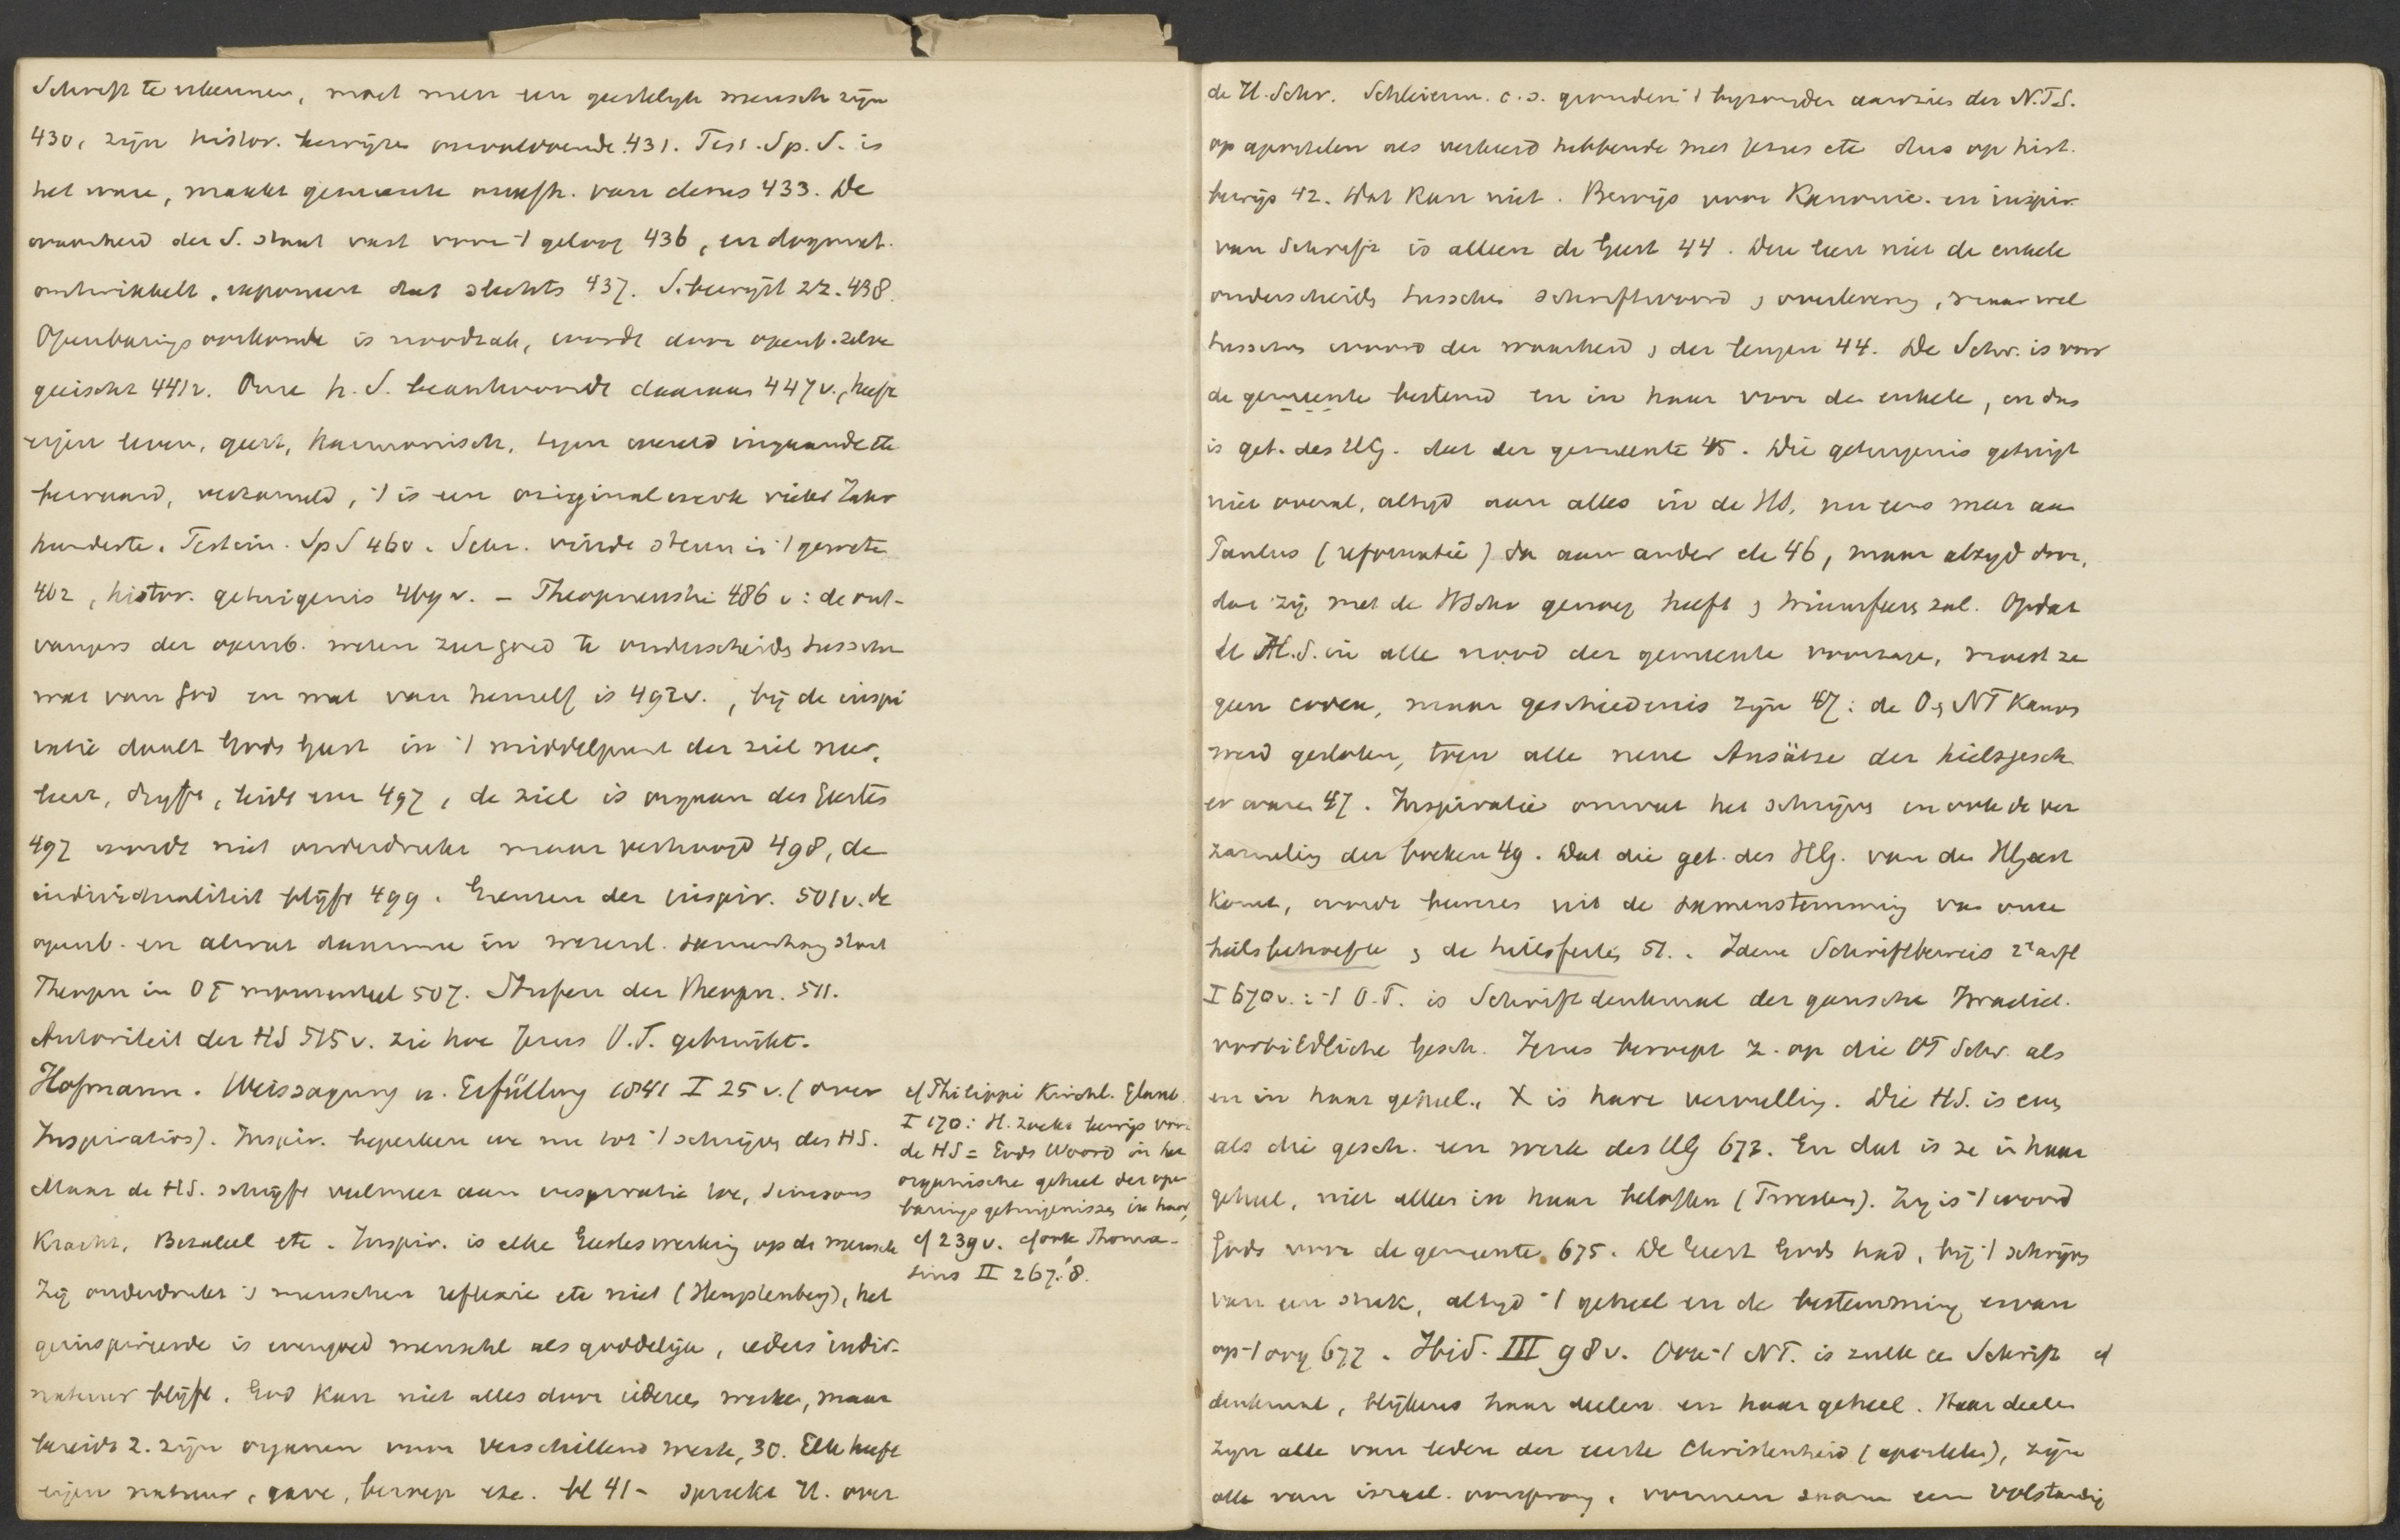 Schrift te erkennen, moet men een geestelijk mensch zijn
430, zijn histor. bewijzen onvoldoende 431. Test. Sp. S. is
het ware, maakt gemeente onafh. van deze 433. De
waarheid der S. staat vast voor 't geloof 436, en dogmat.
ontwikkelt, exponeert dat slechts 437. S. bewijst zz. 438.
Openbaringsoorkonde is noodzak, wordt door openb. zelve
geeischt 441v. Onze h. S. beantwoordt daaraan 447v., heeft
eigen leven, geest, harmonisch, tegen wereld ingaande etc
bewaard, verzameld, 't is een originalwerk vieler Jahr
hunderte. Testim. Sp S 460. Schr. vindt steun in 't geweten
462, histor. getuigenis 469v. – Theopneustie 486v: de ont-
vangers der openb. weten zeer goed te onderscheiden tusschen
wat van God en wat van henzelf is 492v., bij de inspi
ratie daalt Gods Geest in 't middelpunt der ziel neer,
leert, drijft, leidt enz 497, de ziel is orgaan des Geestes
497 wordt niet onderdrukt maar verhoogd 498, de
individualiteit blijft 499. Grenzen der inspir. 501v. de
openb. en alwat daarmee in wezenl. samenhang staat
Theopn in OT momenteel 507. Stufen der Theopn. 511.
Autoriteit der HS 515v. zie hoe Jezus O.T. gebruikt.
Hofmann. Weissagung u. Erfüllung 1841 I 25v. (over
Inspiratios). Inspir. beperken we nu tot 't schrijven des HS.
Maar de HS. schrijft veelmeer aan inspiratie toe, Simsons
Kracht, Bezaleel etc. Inspir. is elke Geesteswerking op de mensch
Zij onderdrukt 's menschen reflexie etc niet (Hengstenberg), het
geinspireerde is evengoed menschl als goddelijk, ieders indiv.
natuur blijft. God kan niet alles door iedereen werken, maar
bereidt z. zijn organen voor verschillend werk, 30. Elk heeft
eigen natuur, gave, beroep etc. bl 41- spreekt H. over
cf Philippi Kirchl. Glaub.
I 170: H. zoekt bewijs voor
de HS = Gods Woord in het
organische geheel der open
barings getuigenissen in haar,
cf 239v. cf ook Thoma-
sius II 267.'8.
de H. Schr. Schleierm. c.s. gronden 't bijzonder aanzien der N.T.S.
op apostelen als verkeerd hebbende met Jezus etc dus op hist.
bewijs 42. Dat kan niet. Bewijs voor Kanonic. en inspir.
van Schrift is alleen de Geest 44. Deze leert niet de enkele
onderscheiden tusschen schriftwoord & overlevering, maar wel
tusschen woord der waarheid & der leugen 44. De Schr. is voor
de gemeente bestemd en in haar voor de enkele, en dus
is get. des HG. dat der gemeente 45. Die getuigenis getuigt
niet overal, altijd aan alles in de HS, nu eens meer aan
Paulus (reformatie) dan aan ander etc 46, maar altijd door,
dat zij met de HSchr genoeg heeft & triumfeeren zal. Opdat
de H.S. in alle nood der gemeente voorzage, moest ze
geen codex, maar geschiedenis zijn 47: de O & NT Kanon
werd gesloten, toen alle neue Ansätze der heilsgesch
er waren 47. Inspiratie omvat het schrijven en ook de ver
zameling der boeken 49. Dat die get. des HG. van den HGeest
komt, wordt bewezen uit de samenstemming van onze
heilsbehoefte & de heilsfeiten 51. Idem Schriftbeweis 2e aufl
I 670v.: 't O.T. is Schriftdenkmal der gansche Israelit.
vorbildliche Gesch. Jezus beroept z. op die OT Schr. als
en in haar geheel., X is hare vervulling. Die HS. is even
als die gesch. een werk des HG 673. En dat is ze in haar
geheel, niet alleen in haar beloften (Twesten). Zij is 't woord
Gods voor de gemeente 675. De Geest Gods had, bij 't schrijven
van een stuk, altijd 't geheel en de bestemming ervan
op 't oog 677. Ibid. III 98v. Ook 't NT. is zulk een Schrift cf
denkmal, blijkens haar deelen en haar geheel. Haar deelen
zijn alle van leden der eerste Christenheid (apostelen), zijn
alle van israel. oorsprong, vormen samen een volstandig